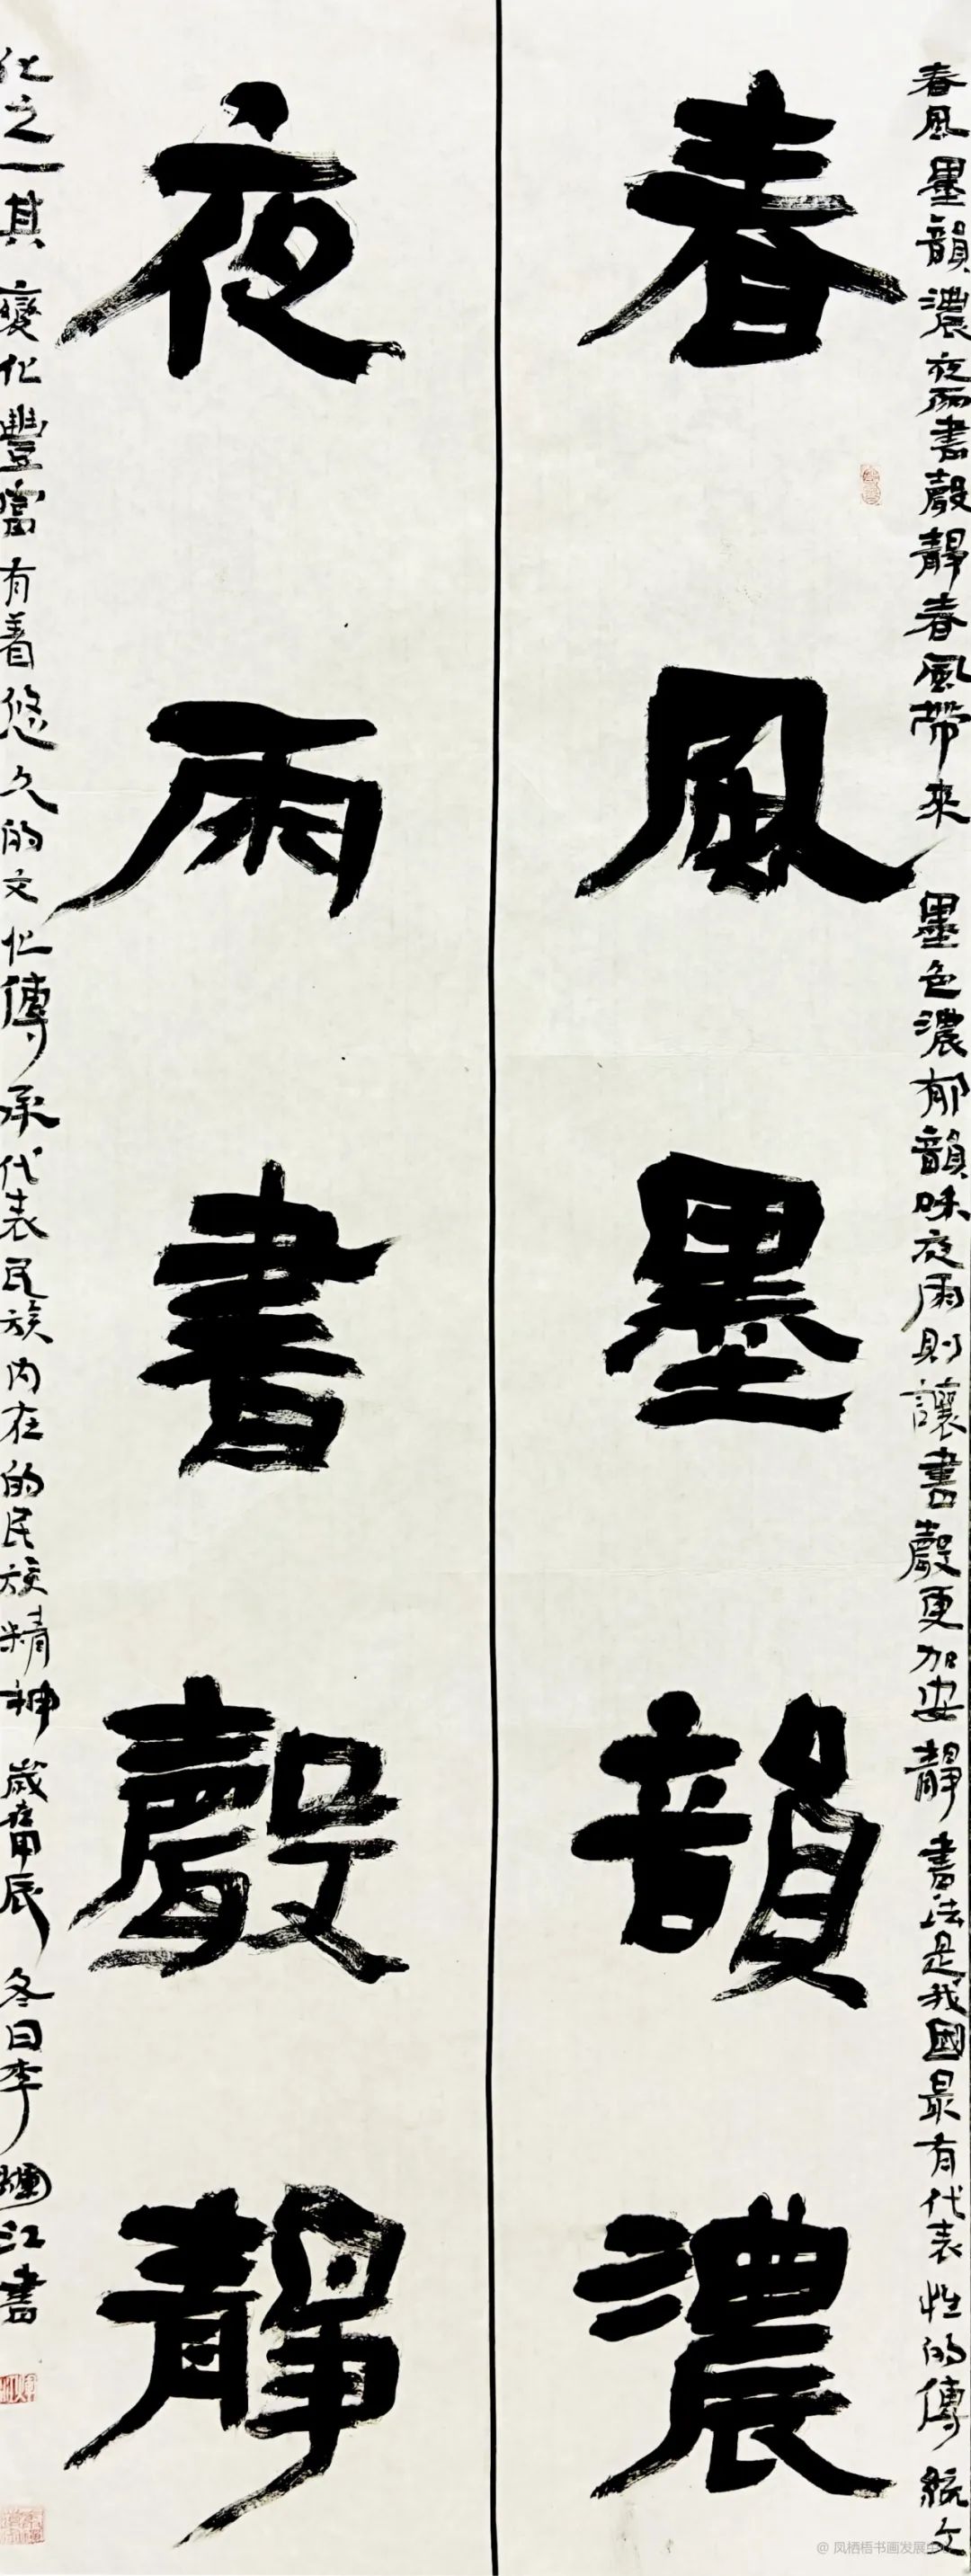 春風墨韻濃夜雨書聲靜春風帶來墨色濃郁韻味夜雨則讓書聲更加安靜書法是我國最有代表性的傳統文
春風墨韻濃
夜雨書聲靜
化之一其變化豐富有着悠久的文化傳承代表民族內在的民族精神歲甫甲辰冬日李江書
@ 凤栖梧书画发展